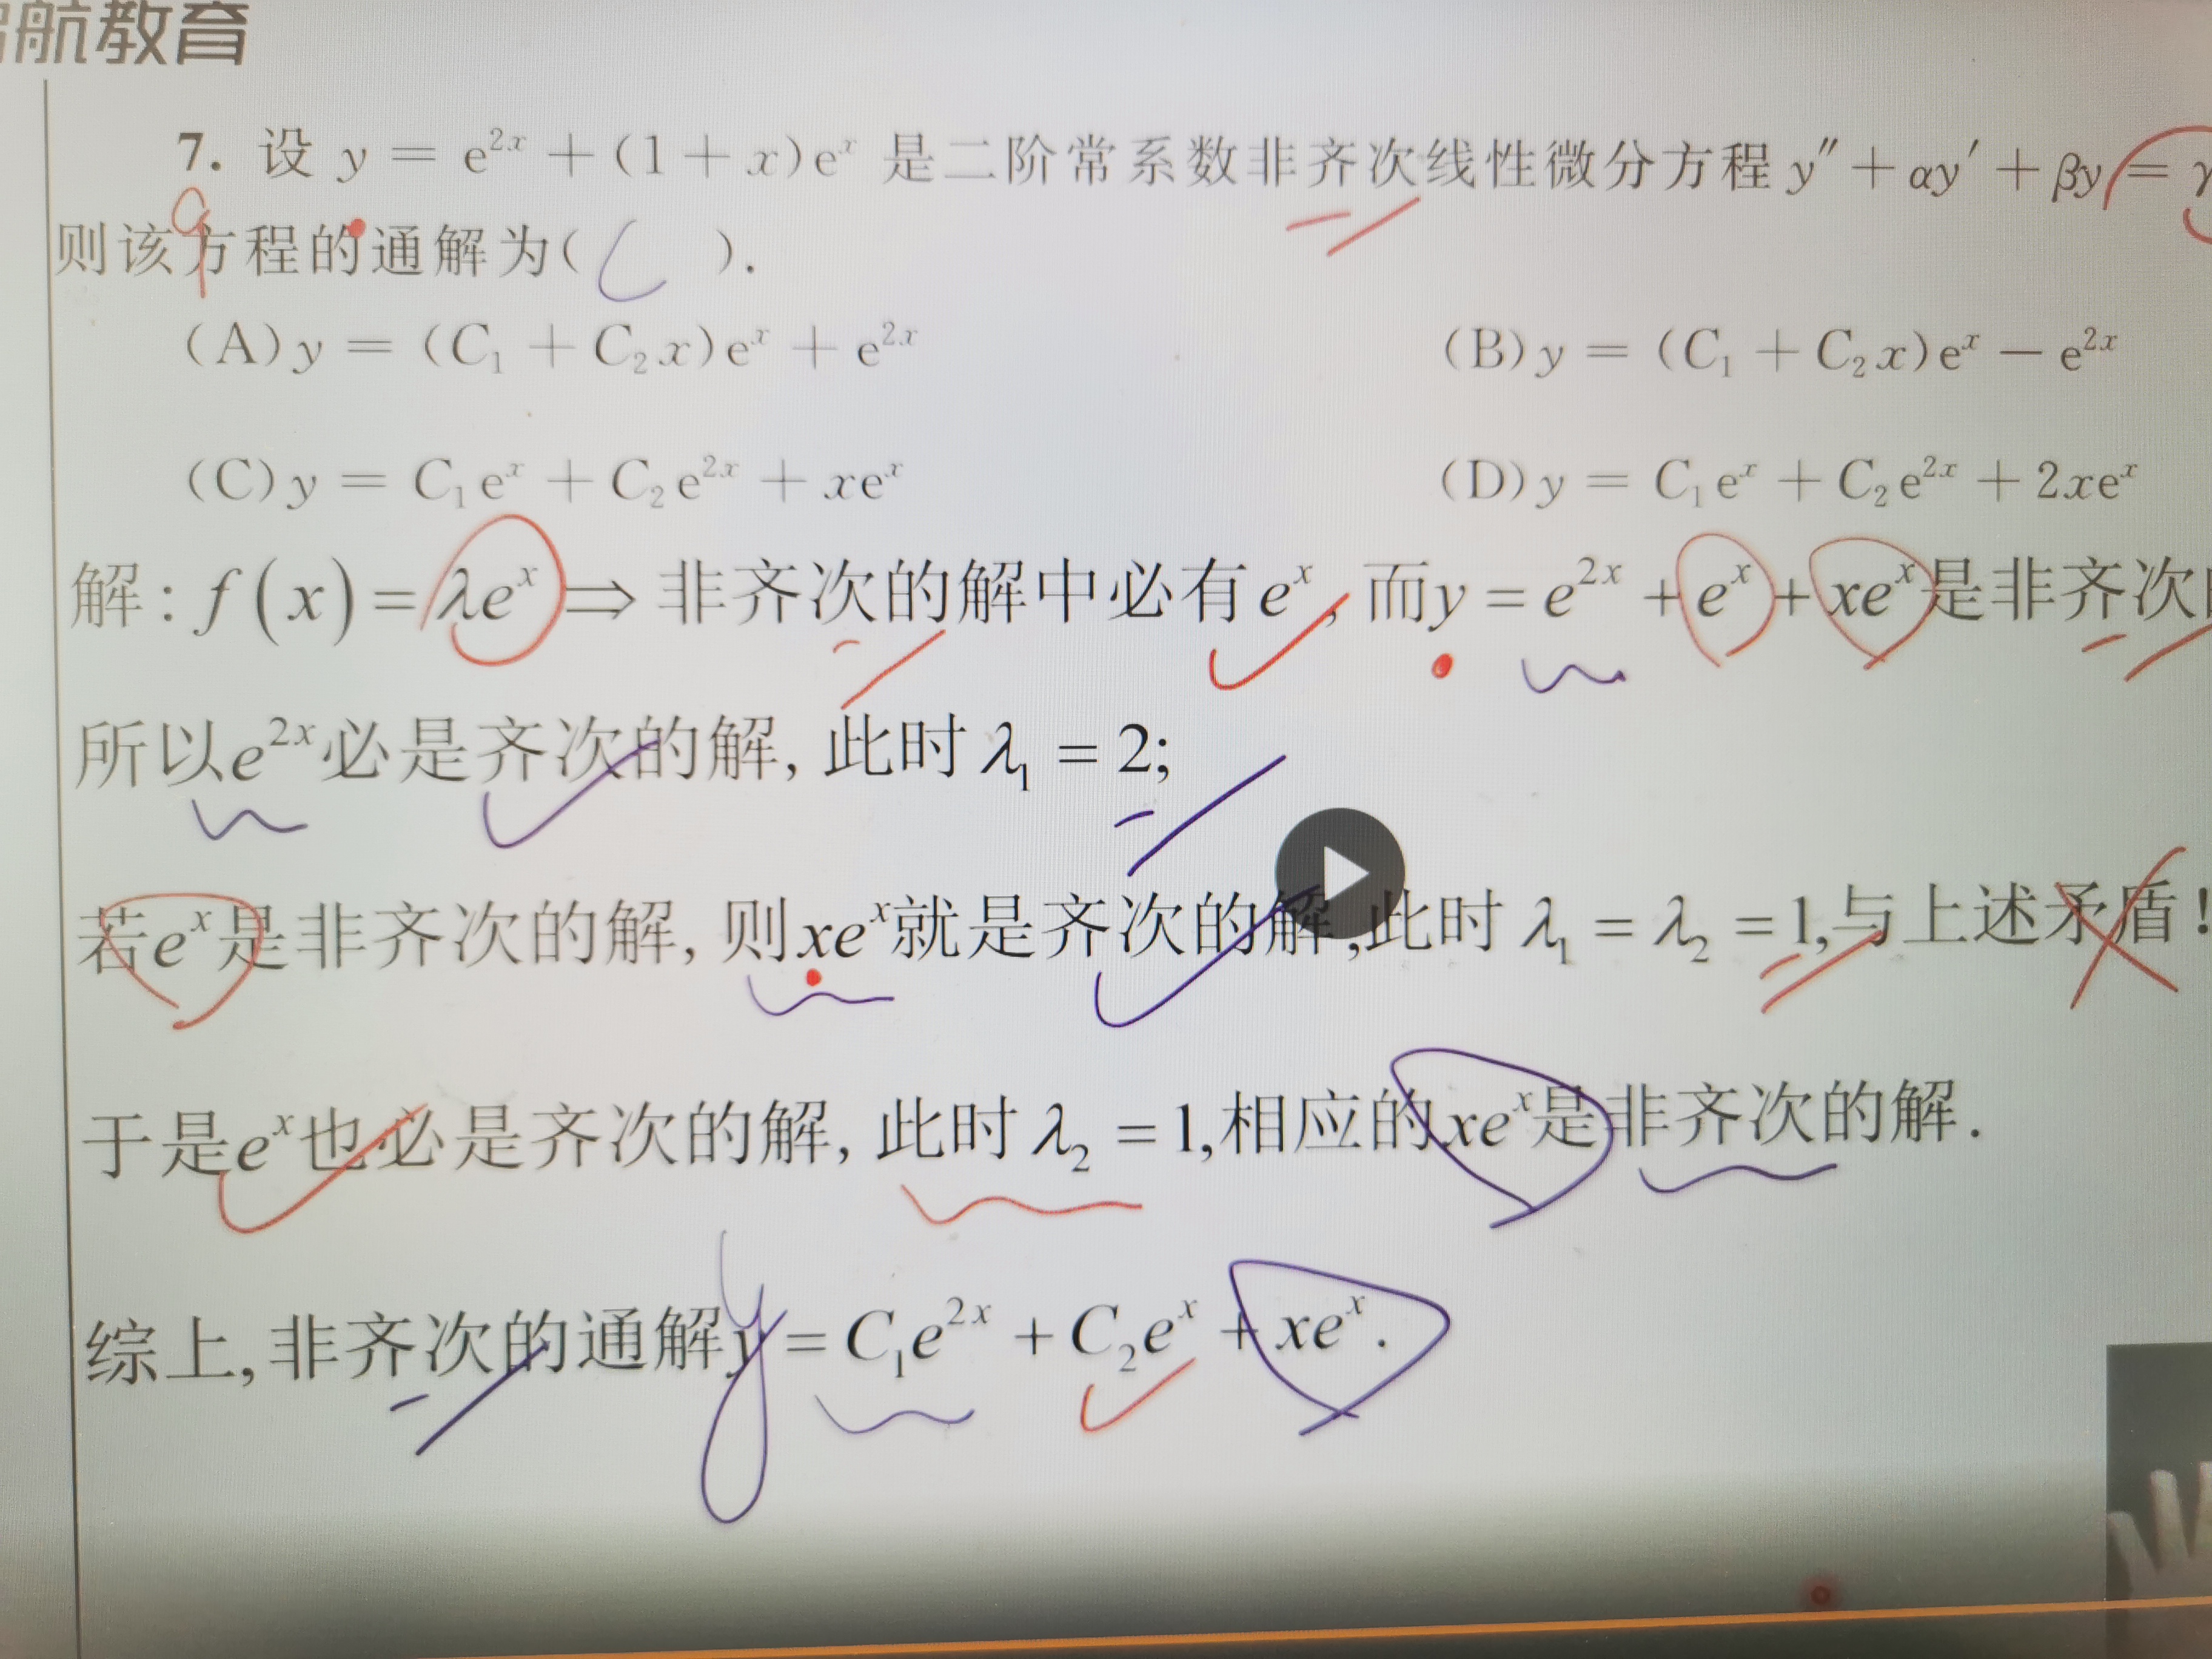 航教育
7. 设 y = e^{2x} + (1 + x)e^x 是二阶常系数非齐次线性微分方程 y″ + αy′ + βy = γ
则该方程的通解为( C ).
(A) y = (C₁ + C₂x)e^x + e^{2x}
(B) y = (C₁ + C₂x)e^x − e^{2x}
(C) y = C₁e^x + C₂e^{2x} + xe^x
(D) y = C₁e^x + C₂e^{2x} + 2xe^x
解: f(x) = λe^x ⇒ 非齐次的解中必有e^x, 而y = e^{2x} + e^x + xe^x是非齐次
所以e^{2x}必是齐次的解, 此时 λ₁ = 2;
若e^x是非齐次的解, 则xe^x就是齐次的解,此时 λ₁ = λ₂ = 1,与上述矛盾!
于是e^x也必是齐次的解, 此时 λ₂ = 1,相应的xe^x是非齐次的解.
综上,非齐次的通解y = C₁e^{2x} + C₂e^x + xe^x.